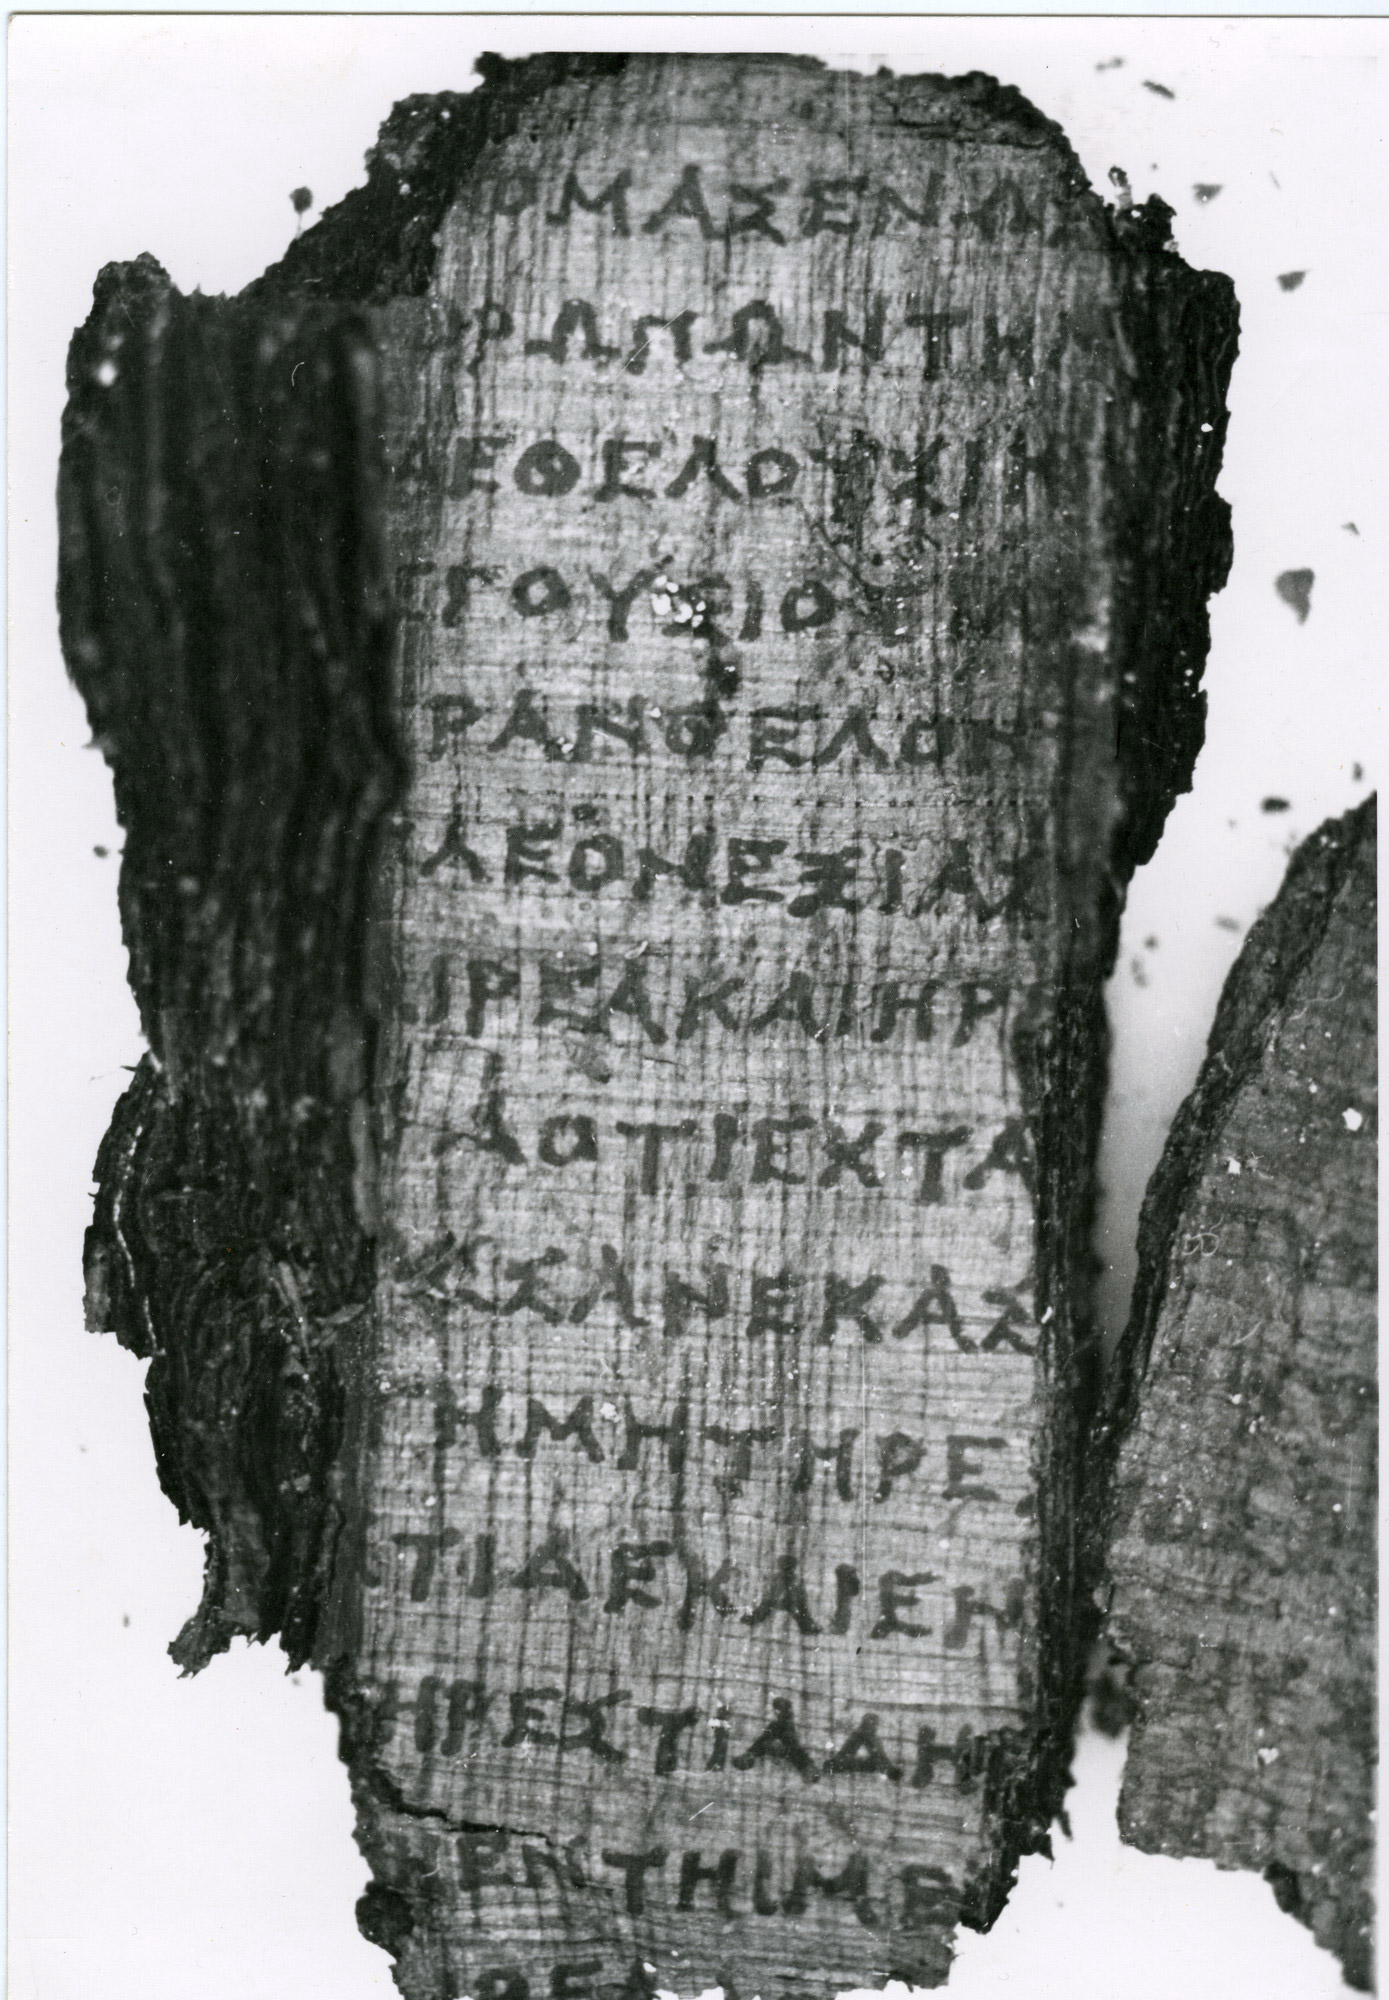 ΟΜΑΣΕΝΑ
ΡΩΠΩΝΤΗ
ΕΘΕΛΟΥΚΙΝ
ΓΟΥΣΙΟ
ΡΑΝΘΕΛΟΝ
ΛΕΟΝΕΞΙΑΣ
ΙΡΕΑΚΑΙΗΡ
ΔΟΤΙΕΧΤΑ
ΣΑΝΕΚΑΣ
ΗΜΗΤΗΡΕ
ΤΙΑΕΚΑΙΕΝ
ΗΡΕΣΤΙΑΔΗ
ΕΝΤΗΙΜΕ
ΡΕΑ